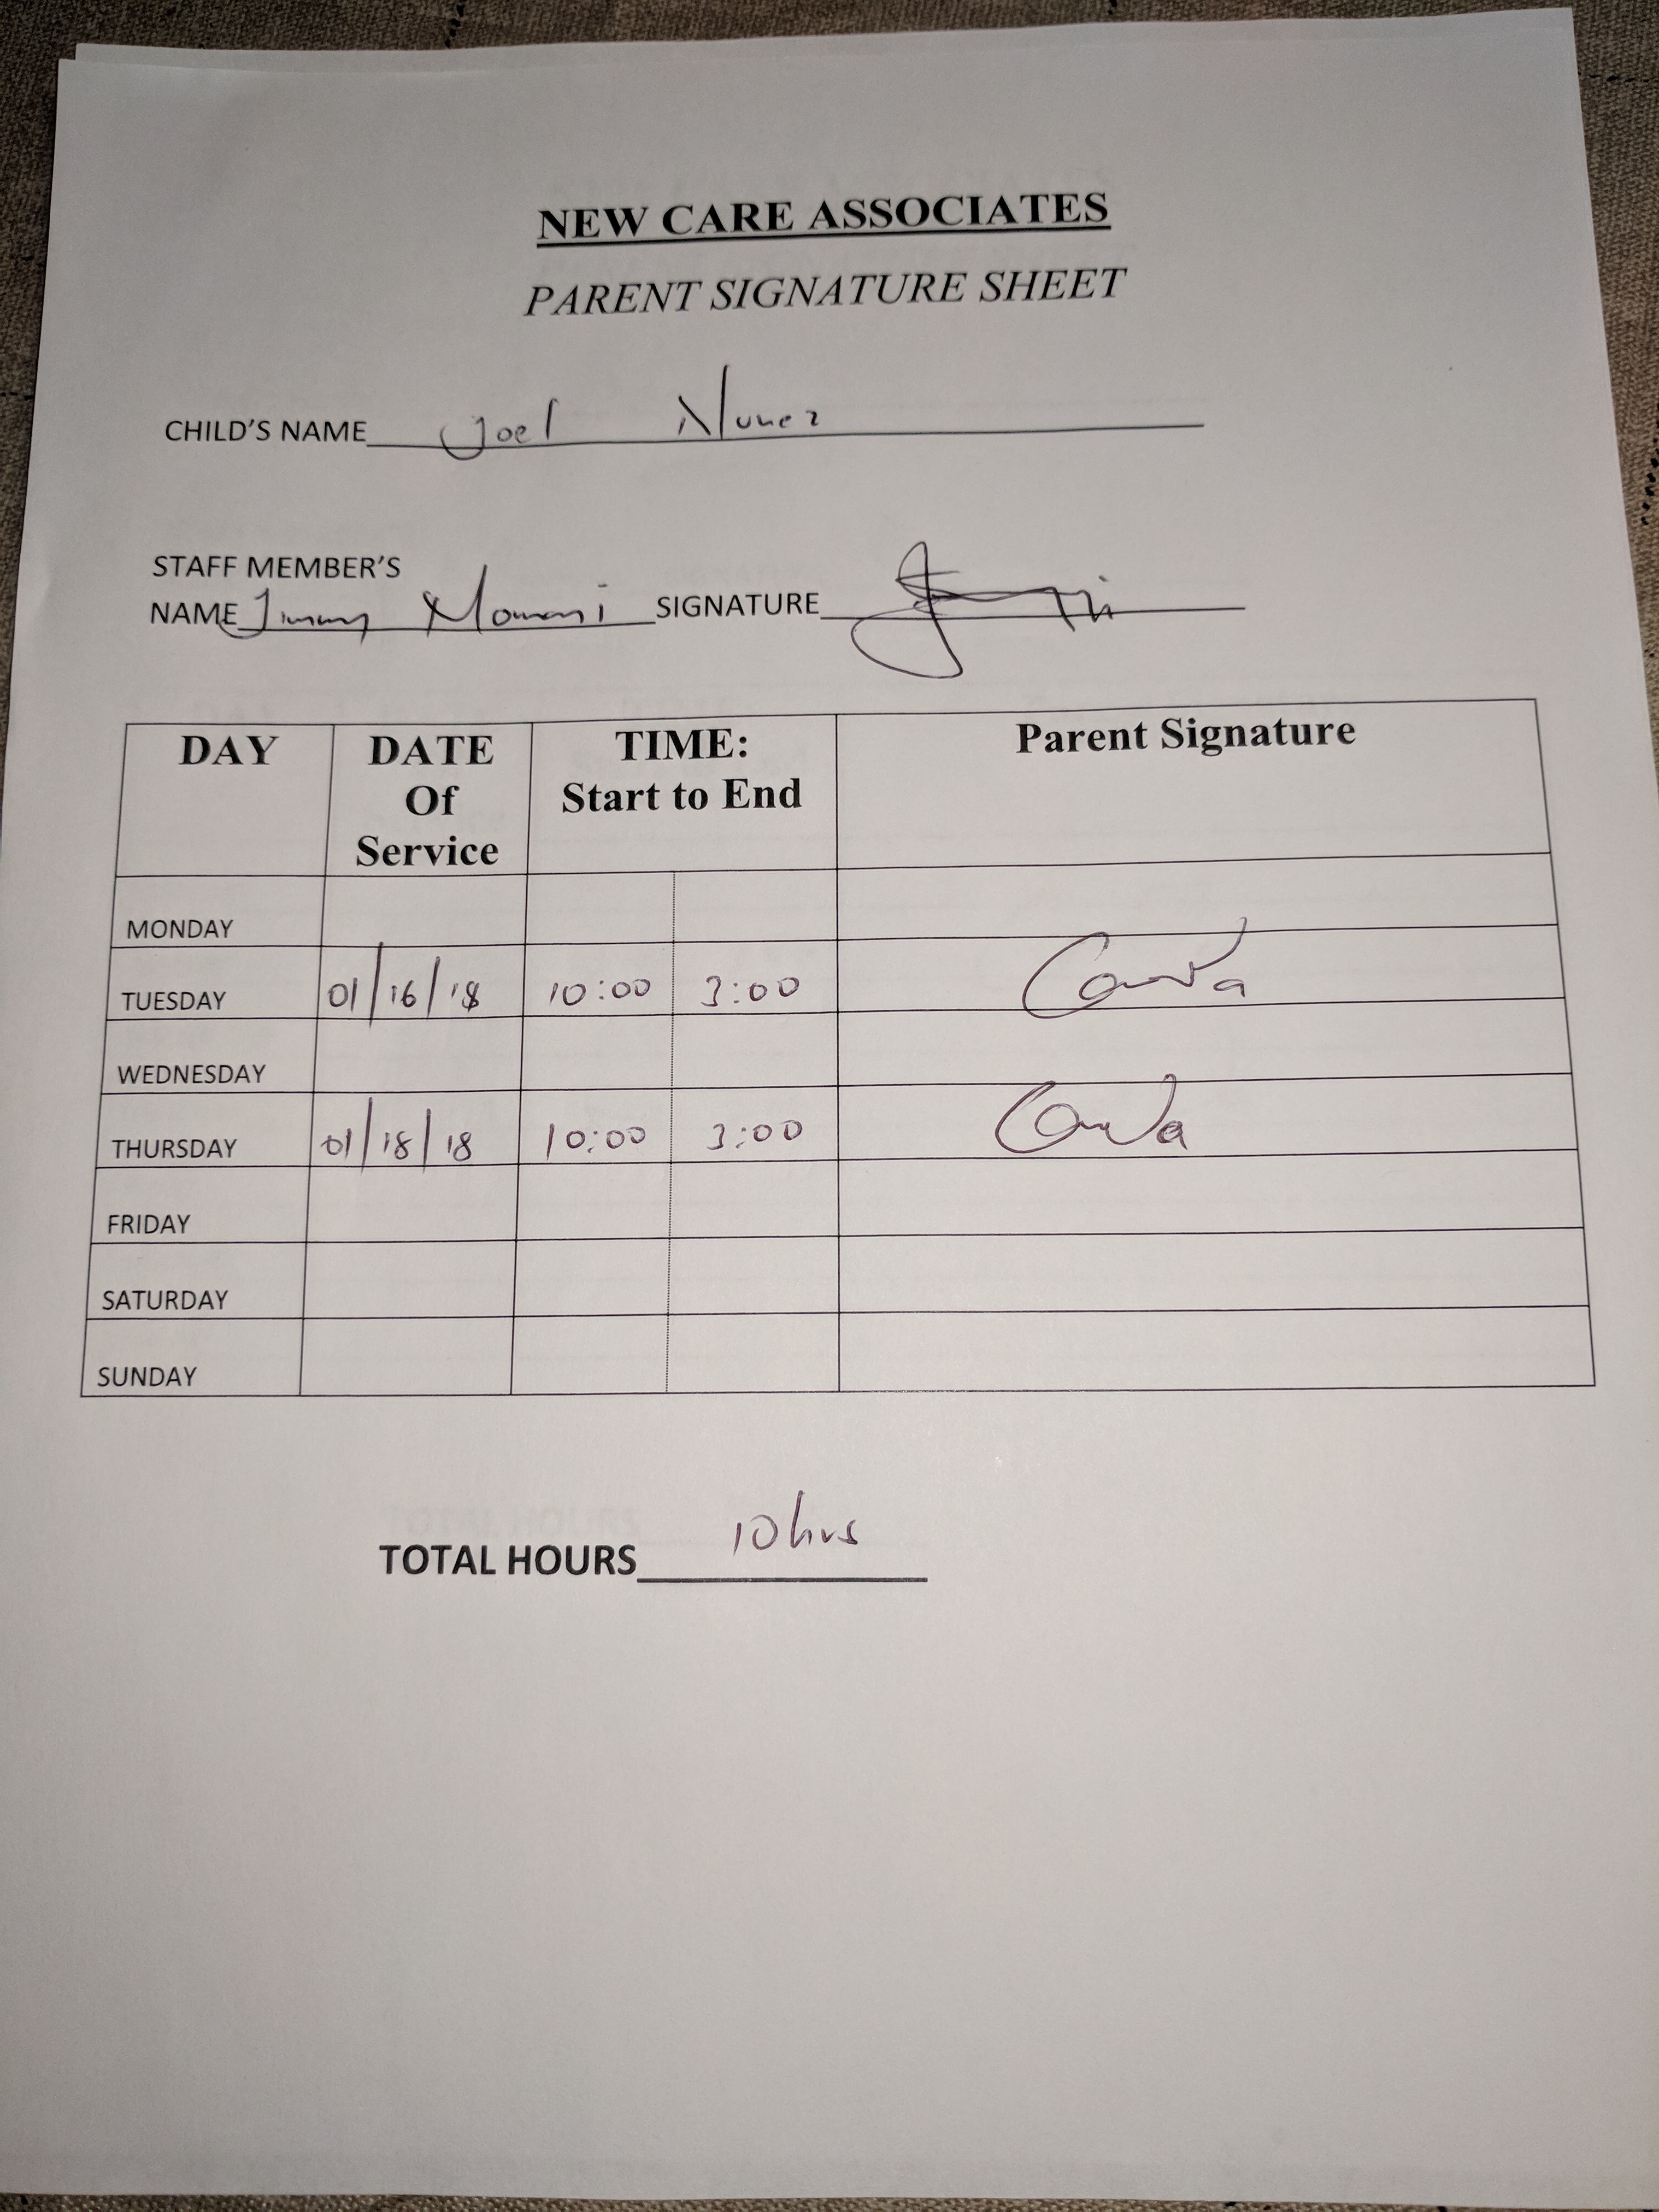 NEW CARE ASSOCIATES
PARENT SIGNATURE SHEET
CHILD'S NAME Joel Nunez
STAFF MEMBER'S
NAME Jimmy SIGNATURE
DAY DATE Of Service TIME: Start to End Parent Signature
MONDAY
TUESDAY 01/16/18 10:00 3:00
WEDNESDAY
THURSDAY 01/18/18 10:00 3:00
FRIDAY
SATURDAY
SUNDAY
TOTAL HOURS 10hrs